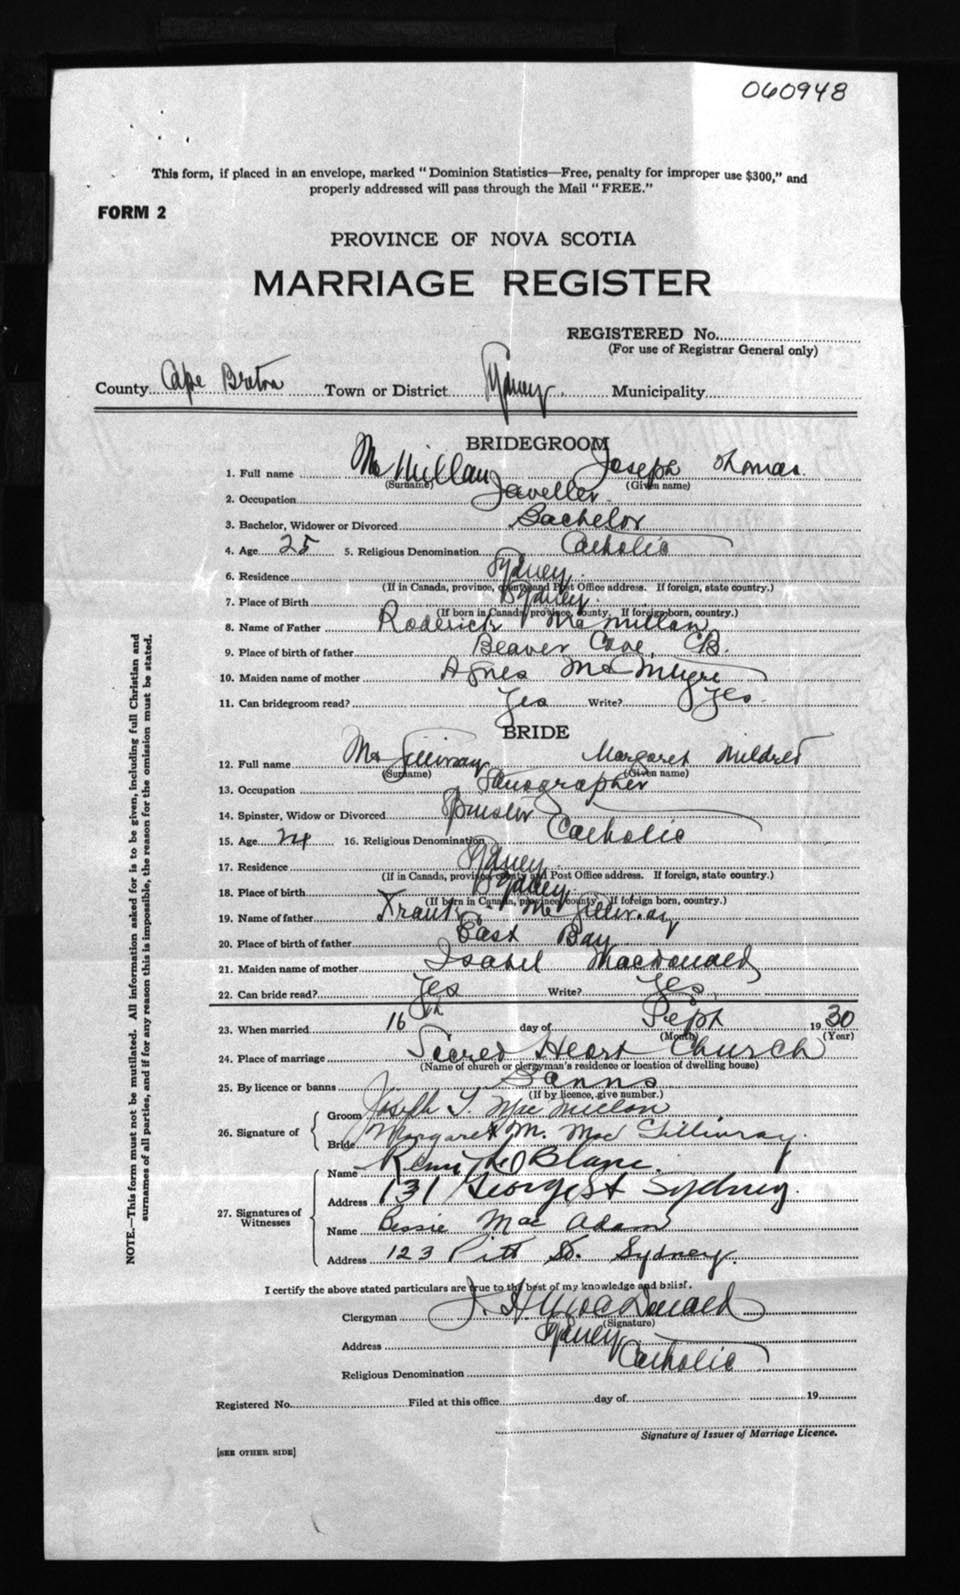 060948
This form, if placed in an envelope, marked "Dominion Statistics—Free, penalty for improper use $300," and
properly addressed will pass through the Mail "FREE."
FORM 2
PROVINCE OF NOVA SCOTIA
MARRIAGE REGISTER
REGISTERED No.
(For use of Registrar General only)
County Cape Breton Town or District Sydney Municipality
BRIDEGROOM
1. Full name McMillan Joseph Thomas
(Surname) (Given name)
2. Occupation Jeweller
3. Bachelor, Widower or Divorced Bachelor
4. Age 25 5. Religious Denomination Catholic
6. Residence Sydney
(If in Canada, province, county and Post Office address. If foreign, state country.)
7. Place of Birth Sydney
(If born in Canada, province, county. If foreign born, country.)
8. Name of Father Roderick McMillan
9. Place of birth of father Beaver Cove, CB.
10. Maiden name of mother Agnes McIntyre
11. Can bridegroom read? Yes Write? Yes
BRIDE
12. Full name McGillivray Margaret Mildred
(Surname) (Given name)
13. Occupation Stenographer
14. Spinster, Widow or Divorced Spinster
15. Age 24 16. Religious Denomination Catholic
17. Residence Sydney
(If in Canada, province, county and Post Office address. If foreign, state country.)
18. Place of birth Sydney
(If born in Canada, province, county. If foreign born, country.)
19. Name of father Frank McGillivray
20. Place of birth of father East Bay
21. Maiden name of mother Isabel MacDonald
22. Can bride read? Yes Write? Yes
23. When married 16th day of Sept 1930
(Month) (Year)
24. Place of marriage Sacred Heart Church
(Name of church or clergyman's residence or location of dwelling house)
25. By licence or banns Banns
(If by licence, give number.)
26. Signature of Groom Joseph T. MacMillan
Bride Margaret M. MacGillivray.
27. Signatures of Witnesses Name LeBlanc.
Address 131 George St Sydney.
Name Bessie MacAdam
Address 123 Pitt St. Sydney.
I certify the above stated particulars are true to the best of my knowledge and belief.
Clergyman J. H. MacDonald
(Signature)
Address Sydney
Religious Denomination Catholic
Registered No. Filed at this office day of 19
Signature of Issuer of Marriage Licence.
[SEE OTHER SIDE]
NOTE.—This form must not be mutilated. All information asked for is to be given, including full Christian and
surnames of all parties, and if for any reason this is impossible, the reason for the omission must be stated.